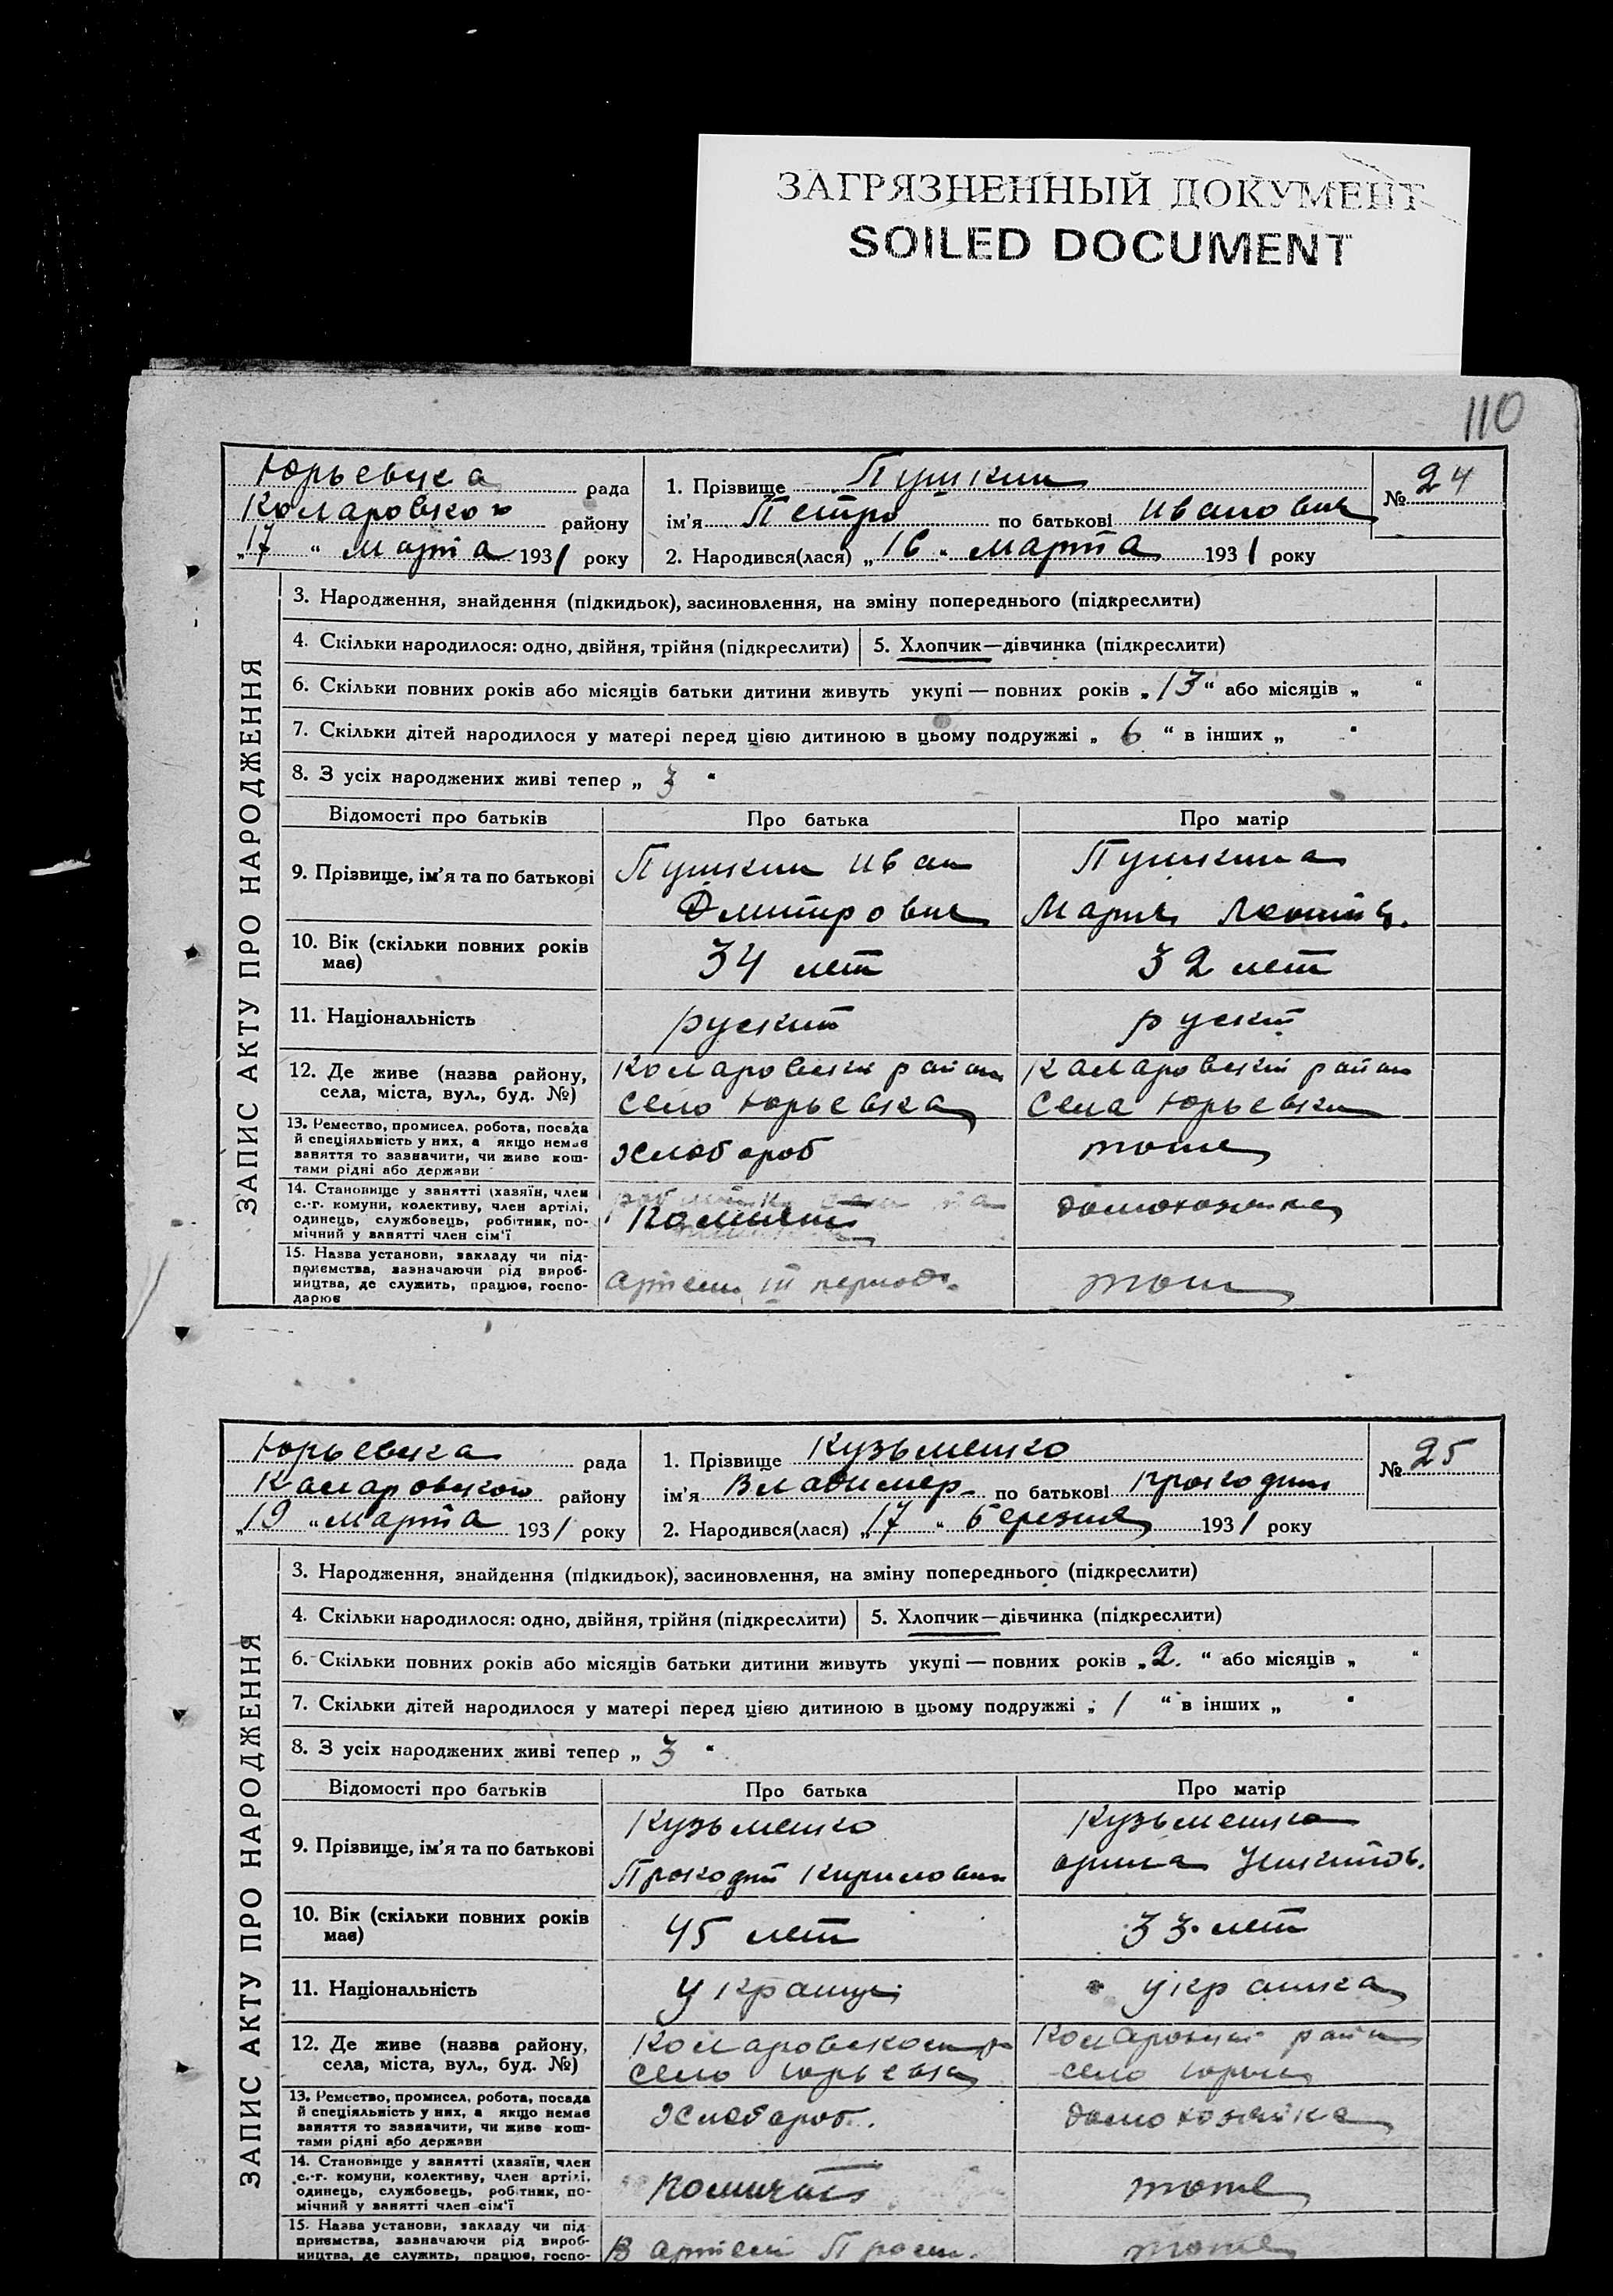 ЗАГРЯЗНЕННЫЙ ДОКУМЕНТ
SOILED DOCUMENT
110
Юрьевка рада
Комаровского району
„17 “ марта 1931 року
1. Прізвище Пушкин
ім’я Петро по батькові Иванович
2. Народився(лася) „16 “ марта 1931 року
№ 24
ЗАПИС АКТУ ПРО НАРОДЖЕННЯ
3. Народження, знайдення (підкидьок), засиновлення, на зміну попереднього (підкреслити)
4. Скільки народилося: одно, двійня, трійня (підкреслити) 5. Хлопчик—дівчинка (підкреслити)
6. Скільки повних років або місяців батьки дитини живуть укупі — повних років „ 13 “ або місяців „ “
7. Скільки дітей народилося у матері перед цією дитиною в цьому подружжі „ 6 “ в інших „ “
8. З усіх народжених живі тепер „ 3 “
Відомості про батьків Про батька Про матір
9. Прізвище, ім’я та по батькові
Пушкин Иван
Дмитрович
Пушкина
Мария
10. Вік (скільки повних років
має)
34 лет
32 лет
11. Національність
руский
руский
12. Де живе (назва району,
села, міста, вул., буд. №)
Комаровски район
село Юрьевка
Камаровский район
села Юрьевка
13. Ремество, промисел, робота, посада
й спеціяльність у них, а якщо немає
заняття то зазначити, чи живе кош-
тами рідні або держави
хлебороб
тоже
14. Становище у занятті (хазяїн, член
с.-г. комуни, колективу, член артілі,
одинець, службовець, робітник, по-
мічний у занятті член сім’ї
домохозяйка
15. Назва установи, закладу чи під-
приємства, зазначаючи рід вироб-
ництва, де служить, працює, госпо-
дарює
артели III
тоже
Юрьевка рада
Камаровского району
„19 “ марта 1931 року
1. Прізвище Кузьменко
ім’я Владимер по батькові
2. Народився(лася) „17 “ березня 1931 року
№ 25
ЗАПИС АКТУ ПРО НАРОДЖЕННЯ
3. Народження, знайдення (підкидьок), засиновлення, на зміну попереднього (підкреслити)
4. Скільки народилося: одно, двійня, трійня (підкреслити) 5. Хлопчик—дівчинка (підкреслити)
6. Скільки повних років або місяців батьки дитини живуть укупі — повних років „ 2. “ або місяців „ “
7. Скільки дітей народилося у матері перед цією дитиною в цьому подружжі „ 1 “ в інших „ “
8. З усіх народжених живі тепер „ 3 “
Відомості про батьків Про батька Про матір
9. Прізвище, ім’я та по батькові
Кузьменко
Кирилович
Кузьменко
орина
10. Вік (скільки повних років
має)
45 лет
33 лет
11. Національність
украинец
украинка
12. Де живе (назва району,
села, міста, вул., буд. №)
село Юрьевка
район
село
13. Ремество, промисел, робота, посада
й спеціяльність у них, а якщо немає
заняття то зазначити, чи живе кош-
тами рідні або держави
хлебороб.
домохозяйка
14. Становище у занятті (хазяїн, член
с.-г. комуни, колективу, член артілі,
одинець, службовець, робітник, по-
мічний у занятті член сім’ї
тоже
15. Назва установи, закладу чи під-
приємства, зазначаючи рід вироб-
ництва, де служить, працює, госпо-
В артели
тоже